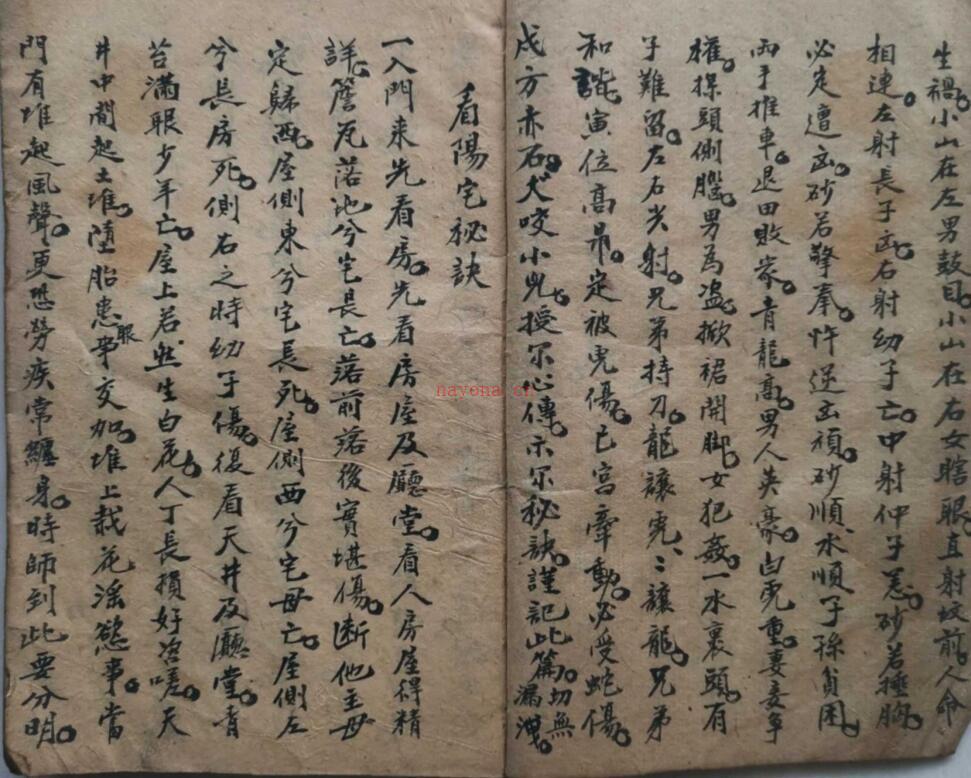 生禍。小山在左男鼓目。小山在右女瞎眼直射坟前。人命
相連。左射長子凶。右射幼子亡。中射仲子惡。砂若捶胸。
必定遭凶。砂若擎拳。忤逆凶頑。砂順、水順子孫貧困。
兩手推車。退田敗家。青龍高。男人英豪。白虎重。妻妾争
權。探頭側腦。男為盗。掀裙開脚。女犯姦。一水裹頭。有
子難留。左右尖射。兄弟持刀。龍讓虎、虎讓龍。兄弟
和諧。寅位高昂。定被虎傷。巳宫牽動。必受蛇傷。
戌方赤石。犬咬小兒。授尔心傳。示尔秘訣。謹記此篇。切無漏洩。
看陽宅秘訣
一入門来先看房。先看房屋及廳堂。看人房屋得精
詳。簷瓦落地兮宅長亡。落前落後實堪傷。断他主母
定歸西。屋側東兮宅長死。屋側西兮宅母亡。屋側左
兮長房死。側右之時幼子傷。復看天井及廳堂。青
苔滿眼少年亡。屋上若然生白花。人丁長損好咨嗟。天
井中間起土堆。墮胎患眼事交加。堆上栽花淫慾事。當
門有堆起風聲。更恐勞疾常纏身。時師到此要分明。
nayona.cn